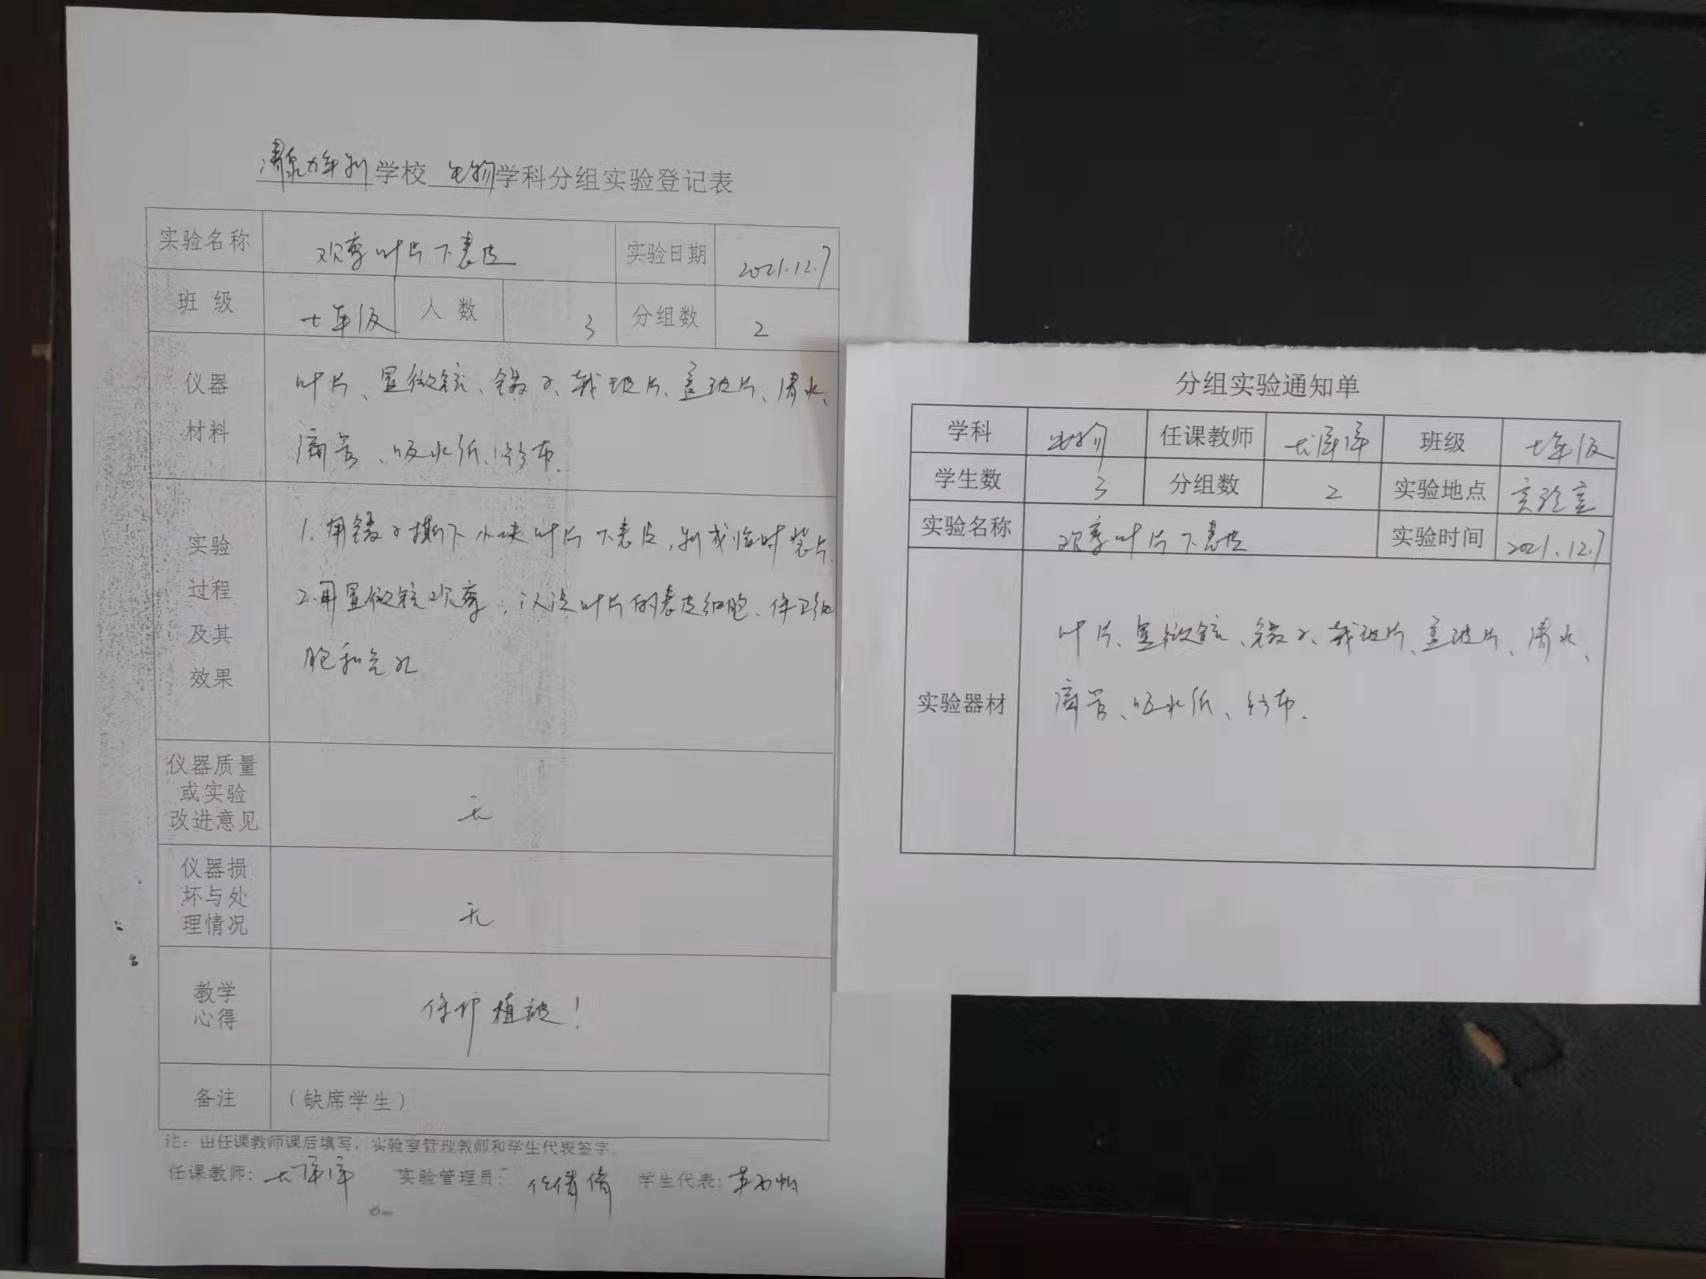 清泉九年制学校 生物学科分组实验登记表
实验名称 观察叶片下表皮 实验日期 2021.12.7
班级 七年级 人数 3 分组数 2
仪器材料
叶片、显微镜、镊子、载玻片、盖玻片、清水、
滴管、吸水纸、纱布.
实验过程及其效果
1.用镊子撕下小块叶片下表皮,制成临时装片.
2.用显微镜观察,认识叶片的表皮细胞、保卫细
胞和气孔
仪器质量或实验改进意见 无
仪器损坏与处理情况 无
教学心得 保护植被!
备注 (缺席学生)
注:由任课教师课后填写,实验室管理教师和学生代表签字。
任课教师: 实验管理员: 任倩倩 学生代表:
分组实验通知单
学科 生物 任课教师 班级 七年级
学生数 3 分组数 2 实验地点 实验室
实验名称 观察叶片下表皮 实验时间 2021.12.7
实验器材
叶片、显微镜、镊子、载玻片、盖玻片、清水、
滴管、吸水纸、纱布.